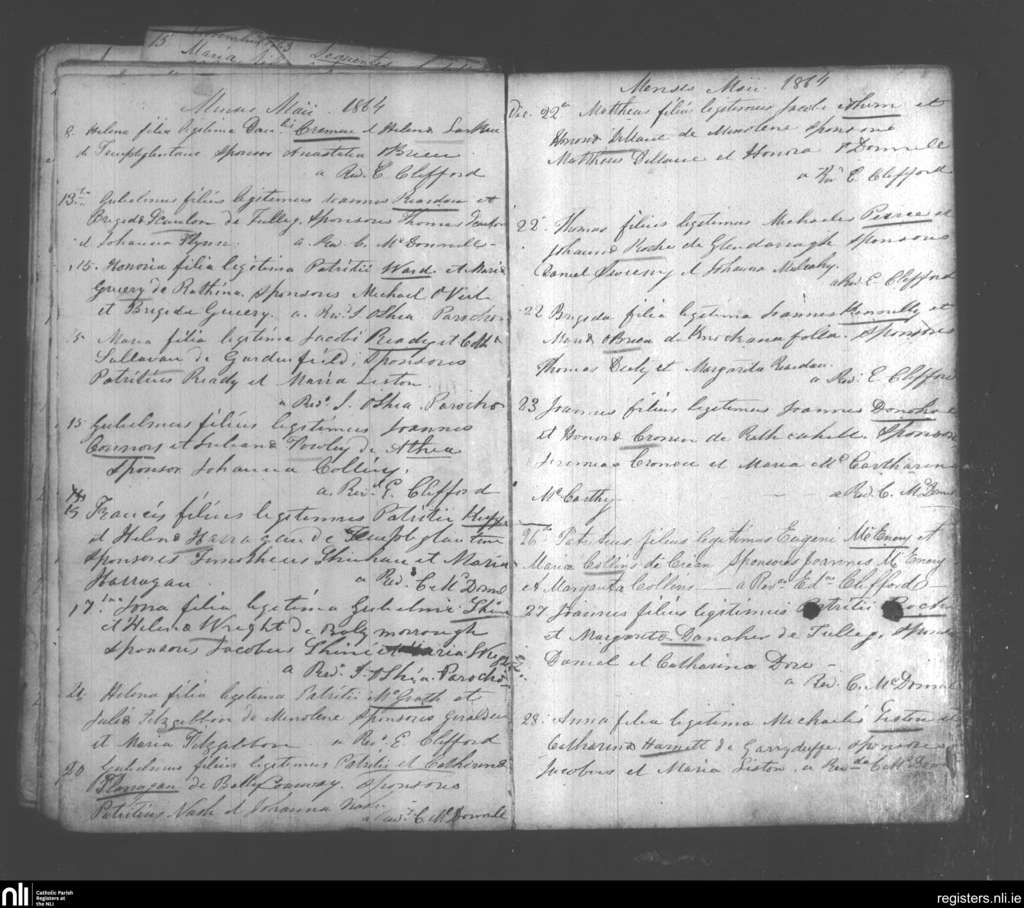 15
Maria
Sequentes
Mensis Maii 1864
8 Helena filia legitima Danlis Cremen et Helena
de Templeglantane Sponsor Anastatia OBrien
a Revd. E Clifford
13 Gulielmus filius legitimus Joannes Reardon et
Brigida Scanlon de Tulleg. Sponsores Thomas
et Johanna Flynn. a Revd. C. McDonnell
15. Honoria filia legitima Patritii Ward et Maria
de Rathina. Sponsores Michael
et Brigida. a. Revd. J OShea Parocho
15 Maria filia legitima Jacobi Ready et
Sullavan de Gardenfield; Sponsores
Patritius Ready et Maria Liston.
a Revd. J. OShea. Parocho
15 Gulielmus filius legitimus Joannes
Connors et de Athea
Sponsor Johanna Collins.
a. Revd. E. Clifford
15 Francis filius legitimus Patritii
et Helena Harragan de Templeglantine
Sponsores Timotheus et Maria
Harragan. a Revd C McDonnell
17 filia legitima Gulielmi
et Helena Wright de
Sponsores Jacobus et Maria
a Revd. J. OShea. Parocho
21 Helena filia legitima Patritii McGrath et
Julia Fitzgibbon de Monolene Sponsores
et Maria Fitzgibbon a Revd. E. Clifford
20 Gulielmus filius legitimus Patritii et Catherina
Flanagan de Sponsores
Patritius Nash et Johanna Nash.
a Revd. C McDonnell
Menses Maii 1864
Die. 22a Mattheus filius legitimus Jacobi et
Honora Dillane de Monolene Sponsores
Mattheus Dillane et Honora
a Revd E. Clifford
22. Thomas filius legitimus Michaelis Pierce et
Johanna Roche de Glendarragh Sponsores
Daniel Sweeny et Johanna Mulcahy.
a Revd E. Clifford
22 Brigida filia legitima Joannes Connelly et
Maria OBrien de Sponsores
Thomas et Margarita Reardan.
a Revd. E Clifford
23 Joannes filius legitimus Joannes Donohoe
et Honora Cronin de Rathcahill. Sponsores
Jeremias Cronin et Maria McCartharina
McCarthy a Revd. C. McDonnell
26 Patritius filius legitimus Eugeni McEnery et
Maria Collins de Sponsores Joannes McEnery
et Margarita Collins a Revd. Edm Clifford
27 Joannes filius legitimus Patritii Roche
et Margareta Danaher de Tulleg. Sponsores
Daniel et Catharina Dore
a Revd. C. McDonnell
28. Anna filia legitima Michaelis Liston et
Catharina Harnett de Garryduffe. Sponsores
Jacobus et Maria Liston. a Revdo C McDonnell
nli
Catholic Parish
Registers at
the NLI
registers.nli.ie